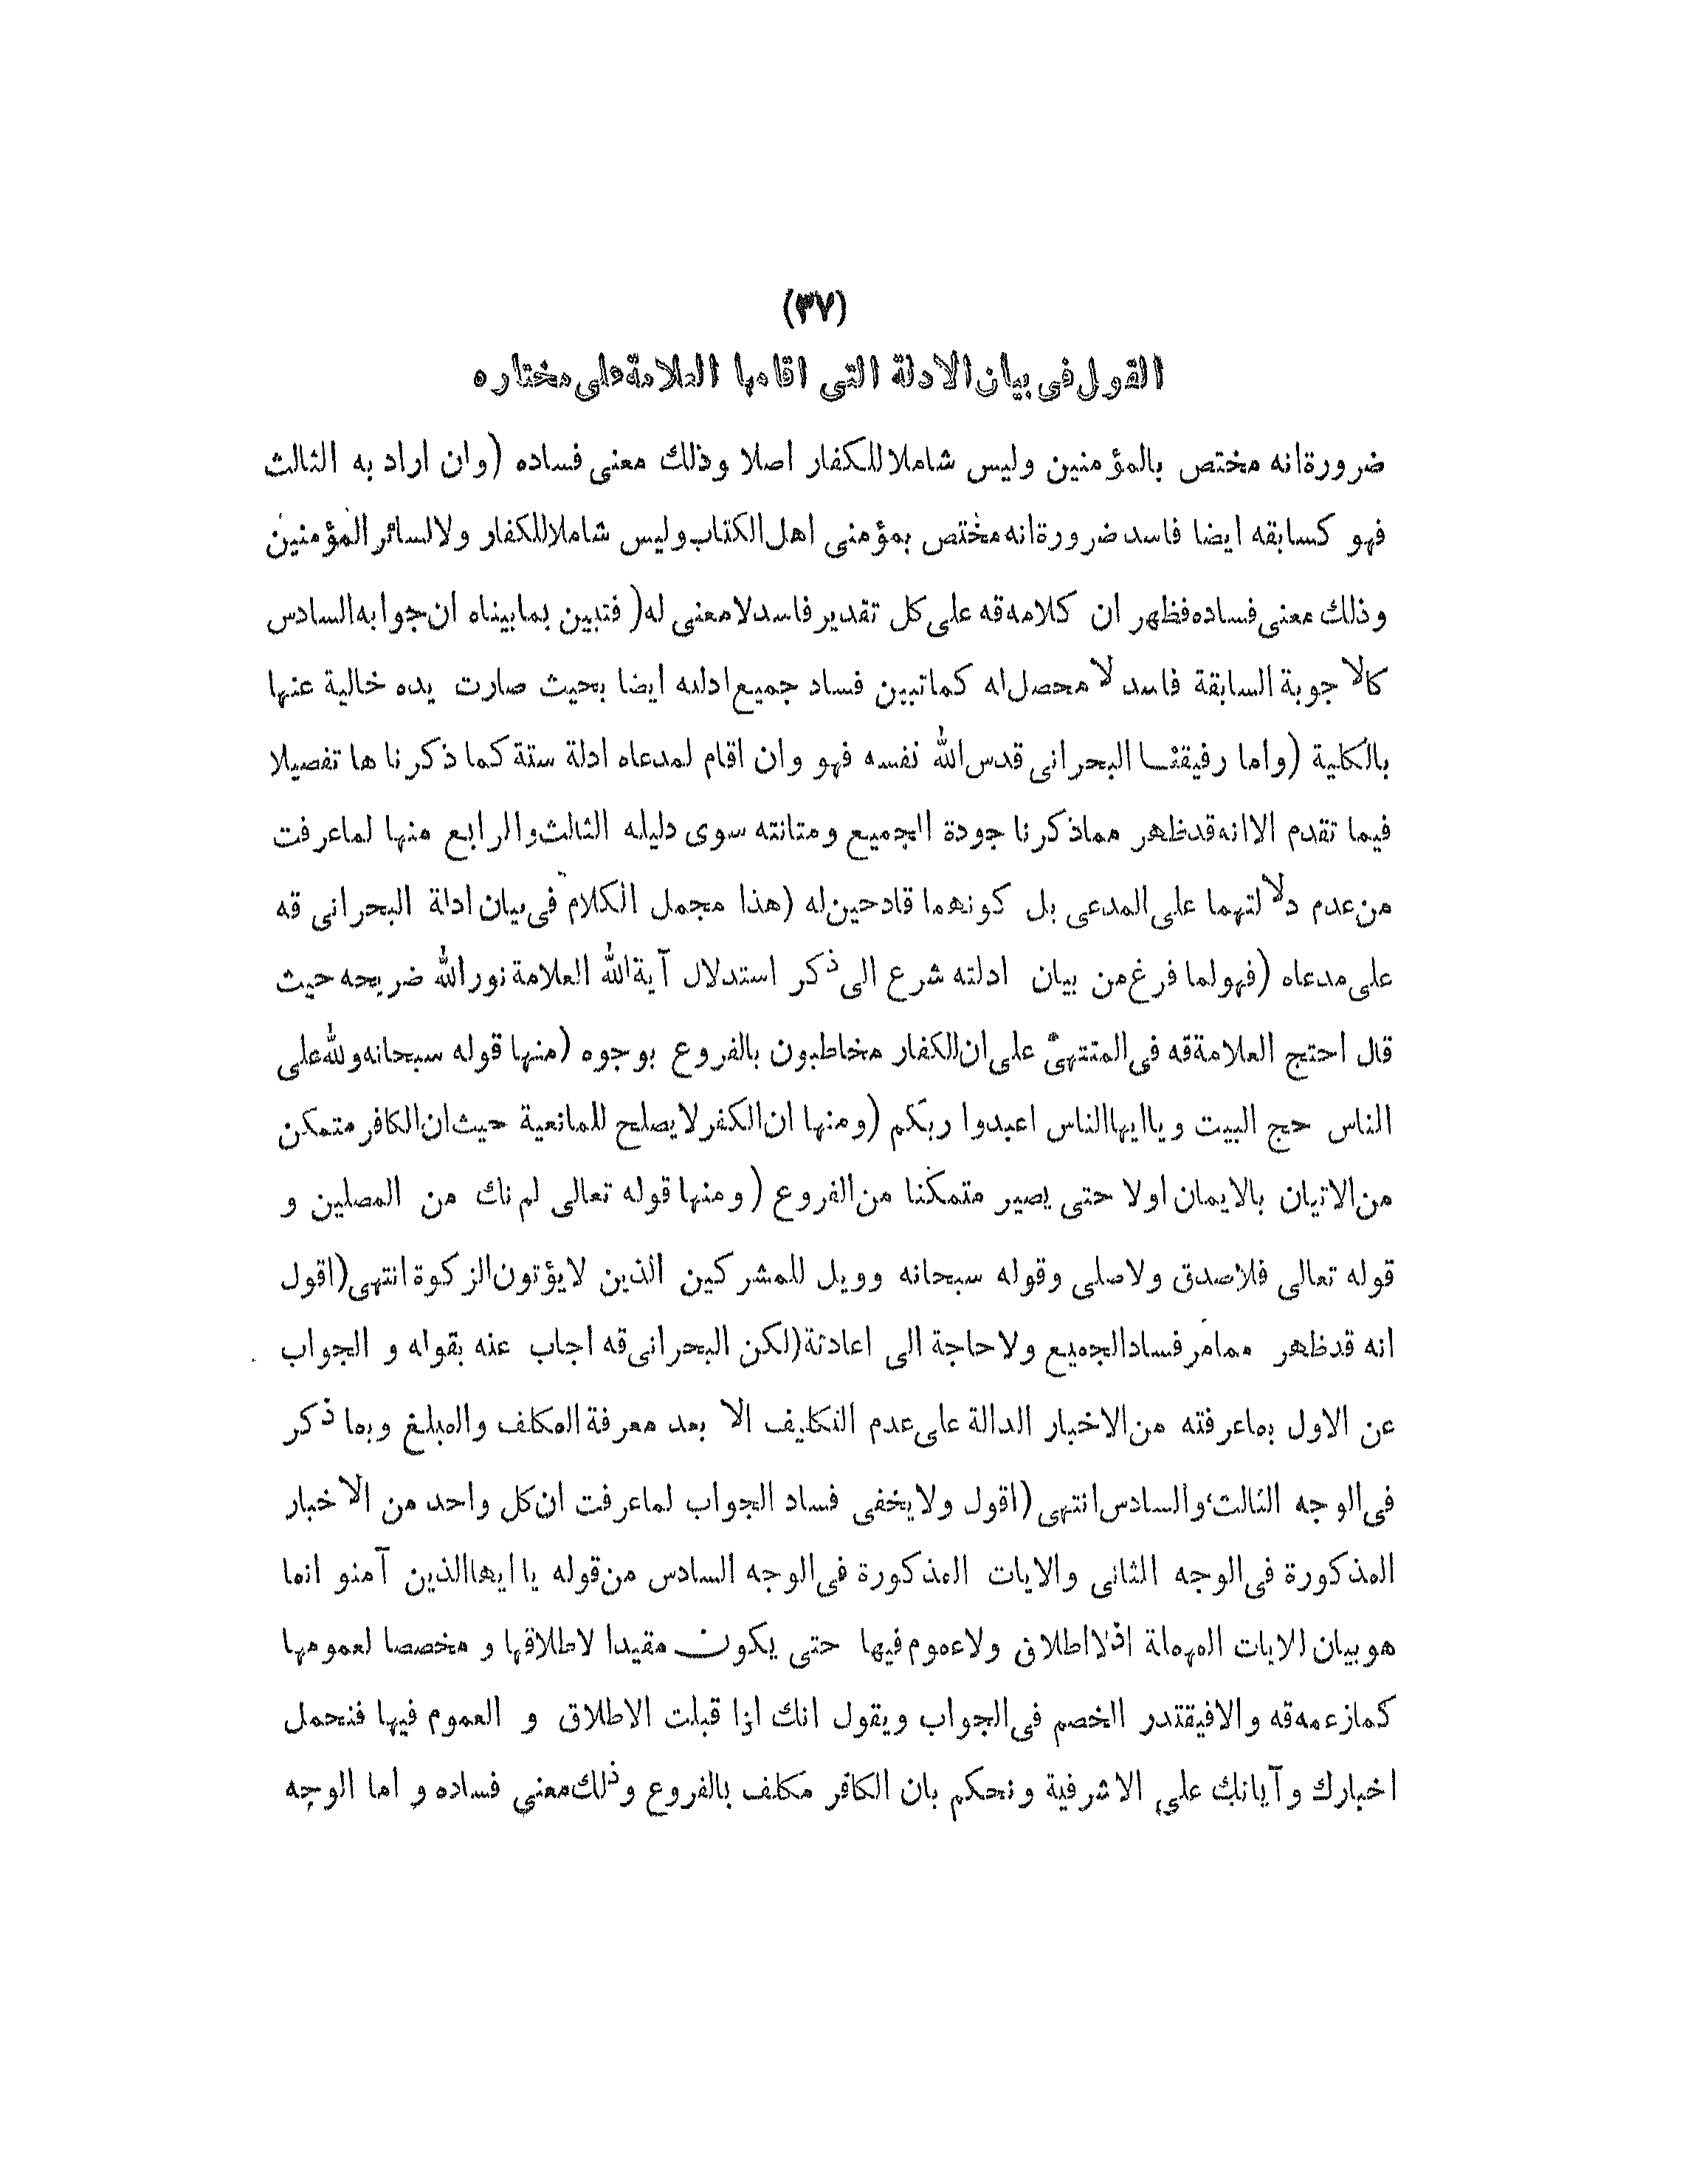 (٣٧)
القول فى بيان الادلة التى اقامها العلامة على مختاره
ضرورة انه مختص بالمؤمنين وليس شاملا للكفار اصلا وذلك معنى فساده (وان اراد به الثالث
فهو كسابقه ايضا فاسد ضرورة انه مختص بمؤمنى اهل الكتاب وليس شاملا للكفار ولا لسائر المؤمنين
وذلك معنى فساده فظهر ان كلامه قه على كل تقدير فاسد لا معنى له( فتبين بما بيناه ان جوابه السادس
كالاجوبة السابقة فاسد لا محصل له كما تبين فساد جميع ادلته ايضا بحيث صارت يده خالية عنها
بالكلية (واما رفيقنا البحرانى قدس الله نفسه فهو وان اقام لمدعاه ادلة ستة كما ذكرناها تفصيلا
فيما تقدم الا انه قد ظهر مما ذكرنا جودة الجميع ومتانته سوى دليله الثالث والرابع منها لما عرفت
من عدم دلالتهما على المدعى بل كونهما قادحين له (هذا مجمل الكلام فى بيان ادلة البحرانى قه
على مدعاه (فهو لما فرغ من بيان ادلته شرع الى ذكر استدلال آية الله العلامة نور الله ضريحه حيث
قال احتج العلامة قه فى المنتهى على ان الكفار مخاطبون بالفروع بوجوه (منها قوله سبحانه ولله على
الناس حج البيت ويا ايها الناس اعبدوا ربكم (ومنها ان الكفر لا يصلح للمانعية حيث ان الكافر متمكن
من الاتيان بالايمان اولا حتى يصير متمكنا من الفروع (ومنها قوله تعالى لم نك من المصلين و
قوله تعالى فلا صدق ولا صلى وقوله سبحانه وويل للمشركين الذين لا يؤتون الزكوة انتهى (اقول
انه قد ظهر مما مر فساد الجميع ولا حاجة الى اعادته (لكن البحرانى قه اجاب عنه بقوله و الجواب
عن الاول بما عرفته من الاخبار الدالة على عدم التكليف الا بعد معرفة المكلف والمبلغ وبما ذكر
فى الوجه الثالث والسادس انتهى (اقول ولا يخفى فساد الجواب لما عرفت ان كل واحد من الاخبار
المذكورة فى الوجه الثانى والايات المذكورة فى الوجه السادس من قوله يا ايها الذين آمنو انما
هو بيان للايات المهملة اذ لا اطلاق ولا عموم فيها حتى يكون مقيدا لاطلاقها و مخصصا لعمومها
كما زعمه قه والا فيقتدر الخصم فى الجواب ويقول انك اذا قبلت الاطلاق و العموم فيها فنحمل
اخبارك وآياتك على الاشرفية ونحكم بان الكافر مكلف بالفروع وذلك معنى فساده و اما الوجه